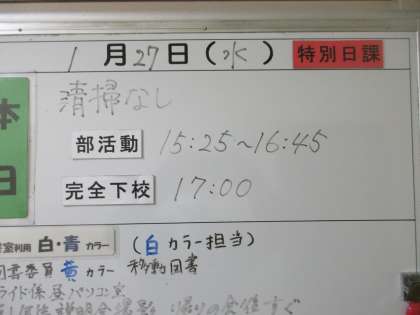 1月27日(水) 特別日課
本日
清掃なし
部活動 15:25~16:45
完全下校 17:00
室利用 白・青 カラー (白カラー担当)
図書委員 黄カラー 移動図書
ライド係 昼パソコン室